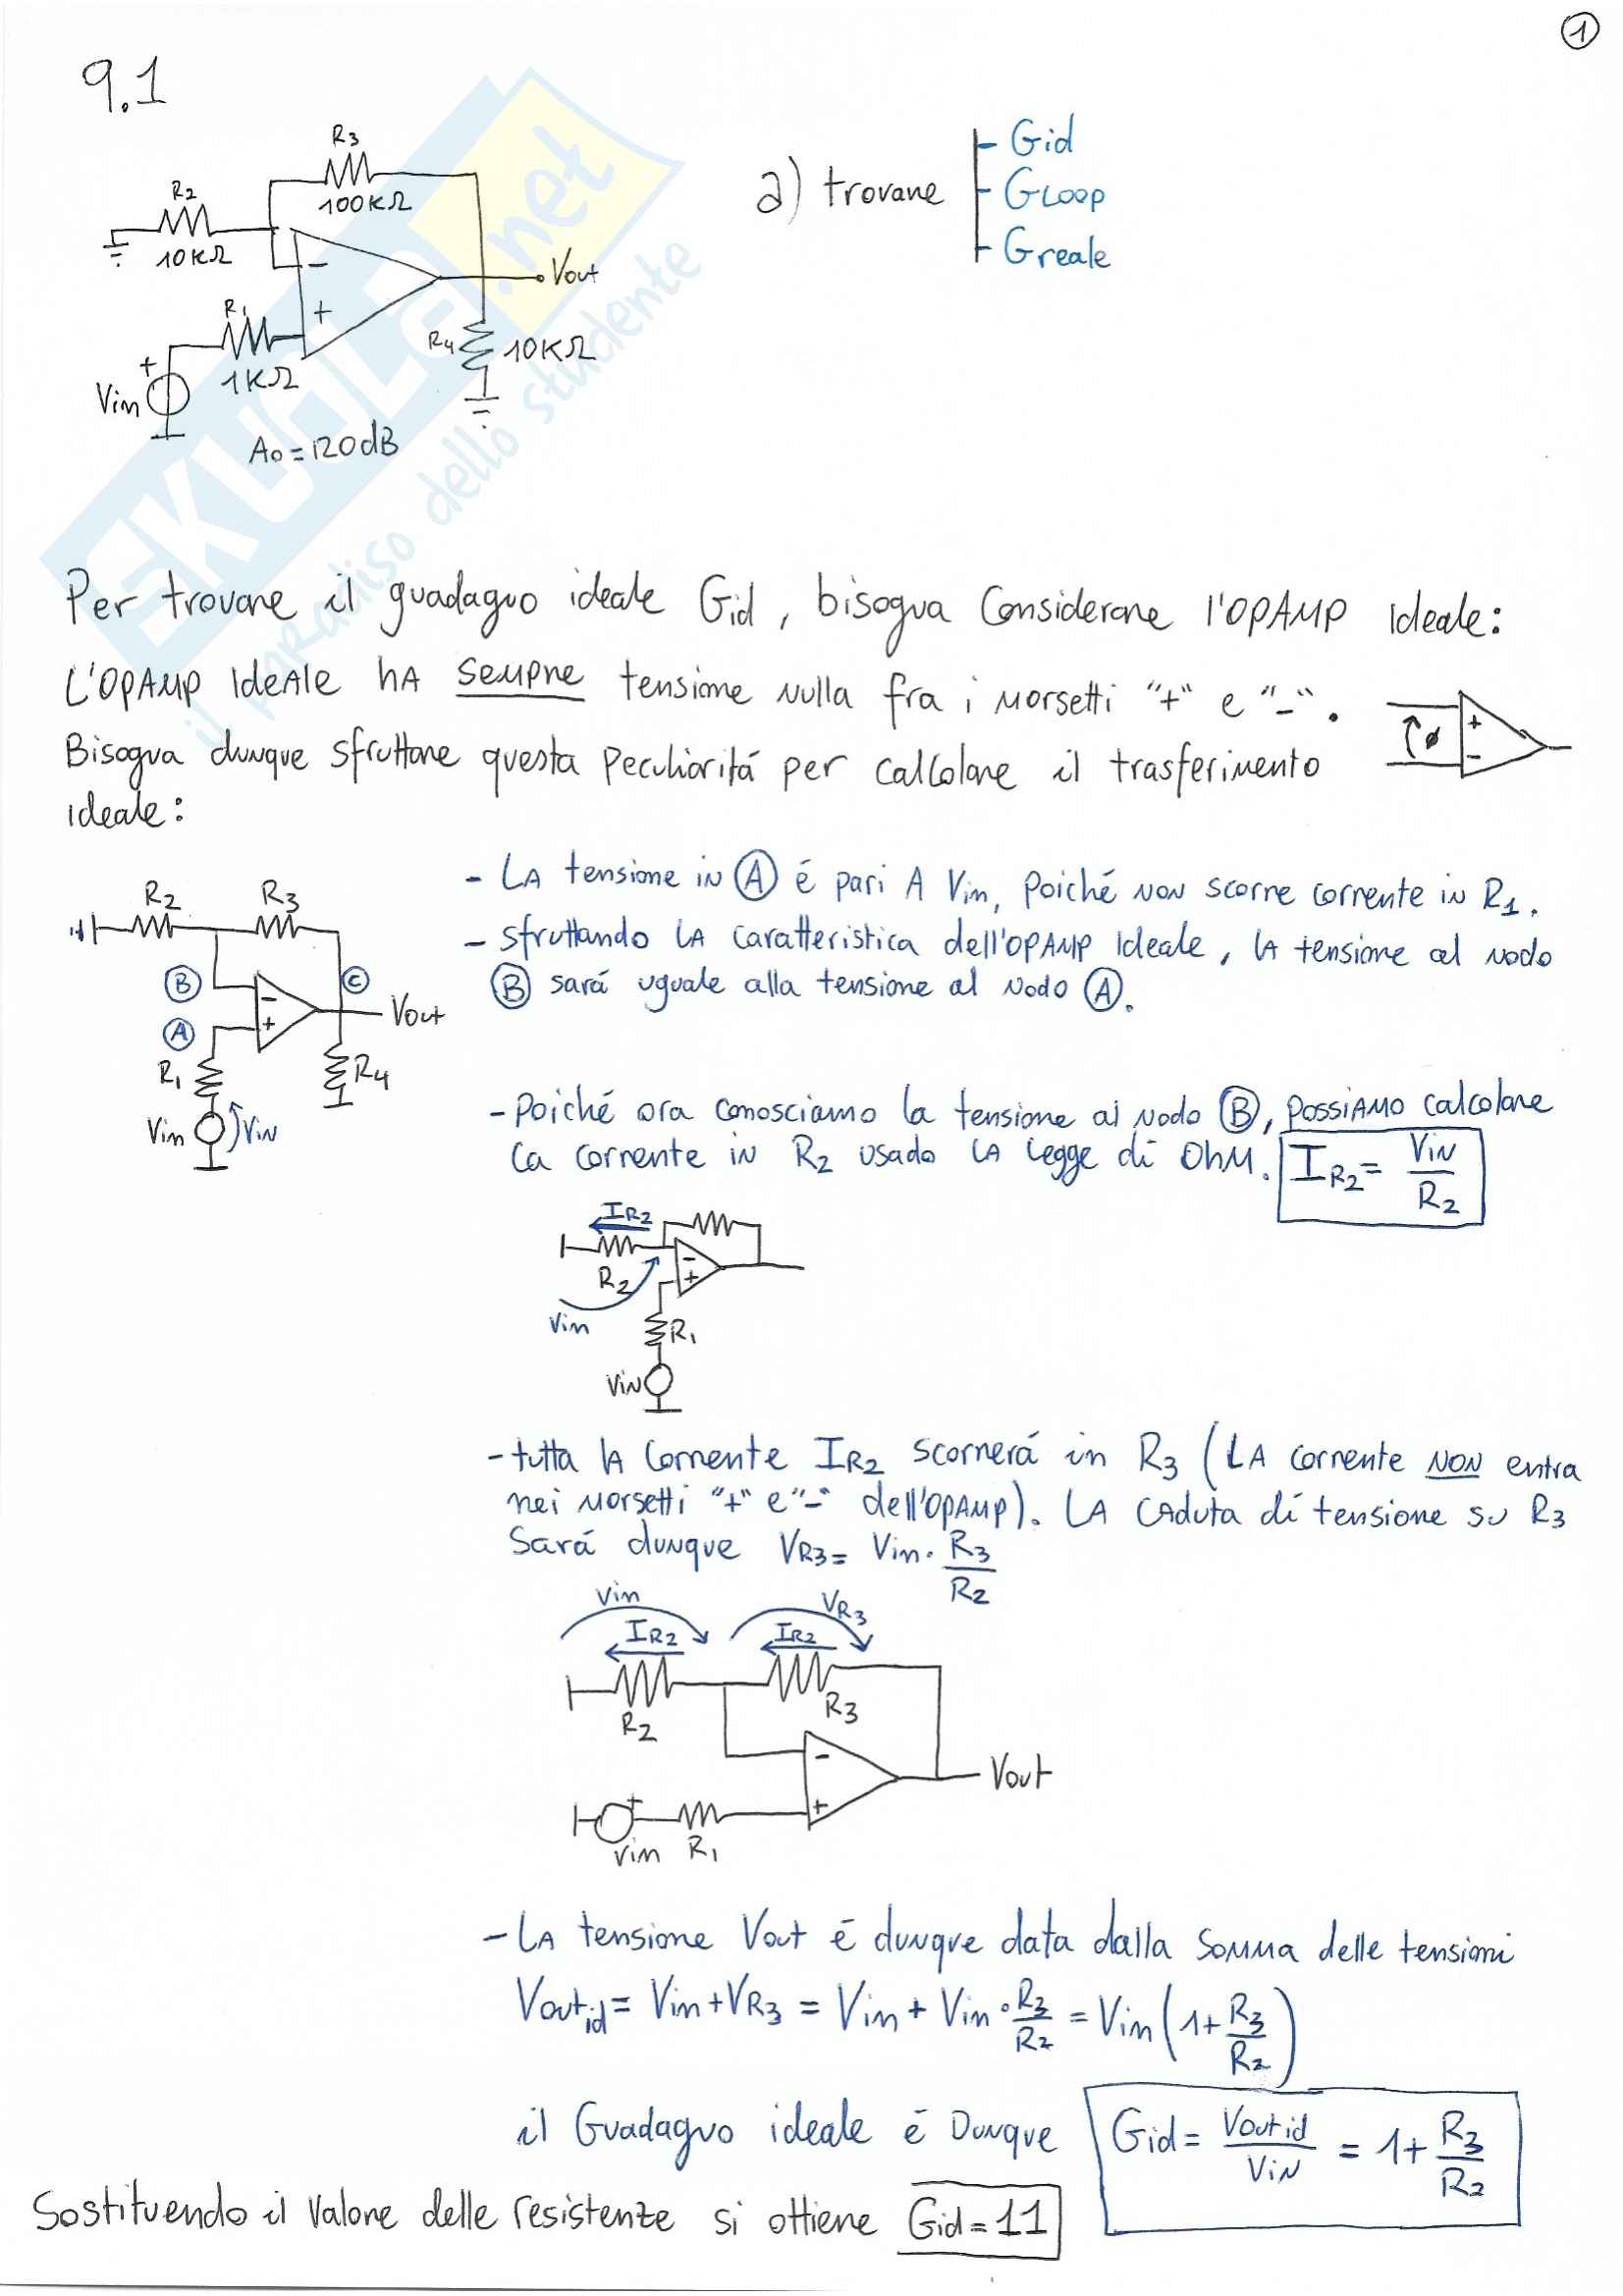 1
9.1
R3
100KΩ
R2
10KΩ
Vout
R1
1KΩ
Vin
R4
10KΩ
A0=120dB
a) trovare
Gid
GLOOP
Greale
SKUOLA.net
il paradiso dello studente
Per trovare il guadagno ideale Gid, bisogna Considerare l'OPAMP Ideale:
L'OPAMP IdeAle hA sempre tensione nulla fra i morsetti "+" e "-".
Bisogna dunque sfruttare questa Peculiaritá per calcolare il trasferimento
ideale:
+
ø
-
R2 R3
B
A
C
-
+
Vout
R1
R4
Vin
Vin
- LA tensione in A é pari A Vin, Poiché non scorre corrente in R1.
- sfruttando LA caratteristica dell'OPAMP Ideale, lA tensione al nodo
B sará uguale alla tensione al nodo A.
- Poiché ora conosciamo la tensione al nodo B, possiAmo calcolare
la corrente in R2 usado LA legge di OhM. IR2 = Vin/R2
IR2
R2
Vin
-
+
R1
Vin
- tutta lA Corrente IR2 scorrerá in R3 (LA corrente NON entra
nei morsetti "+" e "-" dell'OPAMP). LA CAduta di tensione su R3
Sará dunque VR3 = Vin · R3/R2
Vin
VR3
IR2
IR2
R2
R3
-
+
Vout
+
Vin
R1
- LA tensione Vout é dunque data dalla somma delle tensioni
Voutid = Vin + VR3 = Vin + Vin · R3/R2 = Vin (1 + R3/R2)
il Guadagno ideale é Dunque Gid = Vout id/Vin = 1 + R3/R2
Sostituendo il valore delle resistenze si ottiene Gid = 11